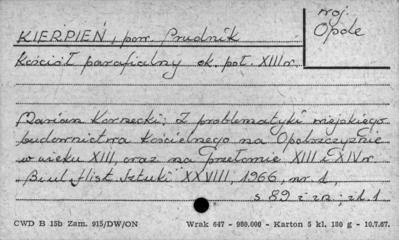 KIERPIEŃ, pow. Prudnik
woj.
Opole
Kościół parafialny ok. poł. XIII w.
Marian Kornecki: Z problematyki wiejskiego
budownictwa kościelnego na Opolszczyźnie
w wieku XIII, oraz na przełomie XIII i XIV w.
Biul. Hist. Sztuki XXVIII, 1966, nr. 1,
s 89 i in; il. 1
CWD B 15b Zam. 915/DW/ON Wrak 647 - 980.000 - Karton 5 kl. 180 g - 10.7.67.